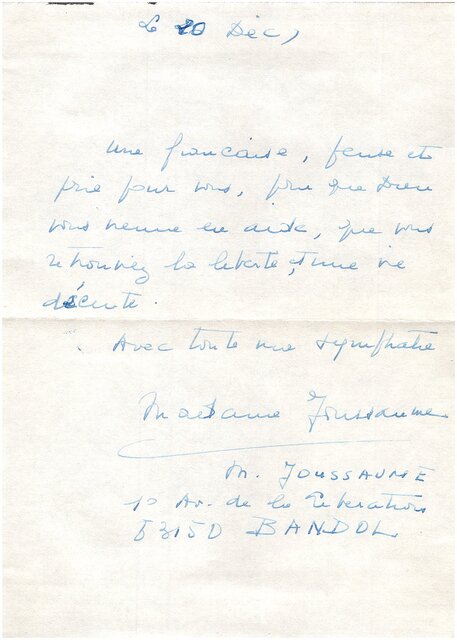 Le 20 Déc,
Une française, pense et
prie pour vous, pour que Dieu
vous vienne en aide, que vous
retrouviez la liberté, et une vie
décente.
Avec toute ma sympathie
Madame Joussaume
M. JOUSSAUME
10 Av. de la Liberation
83150 BANDOL